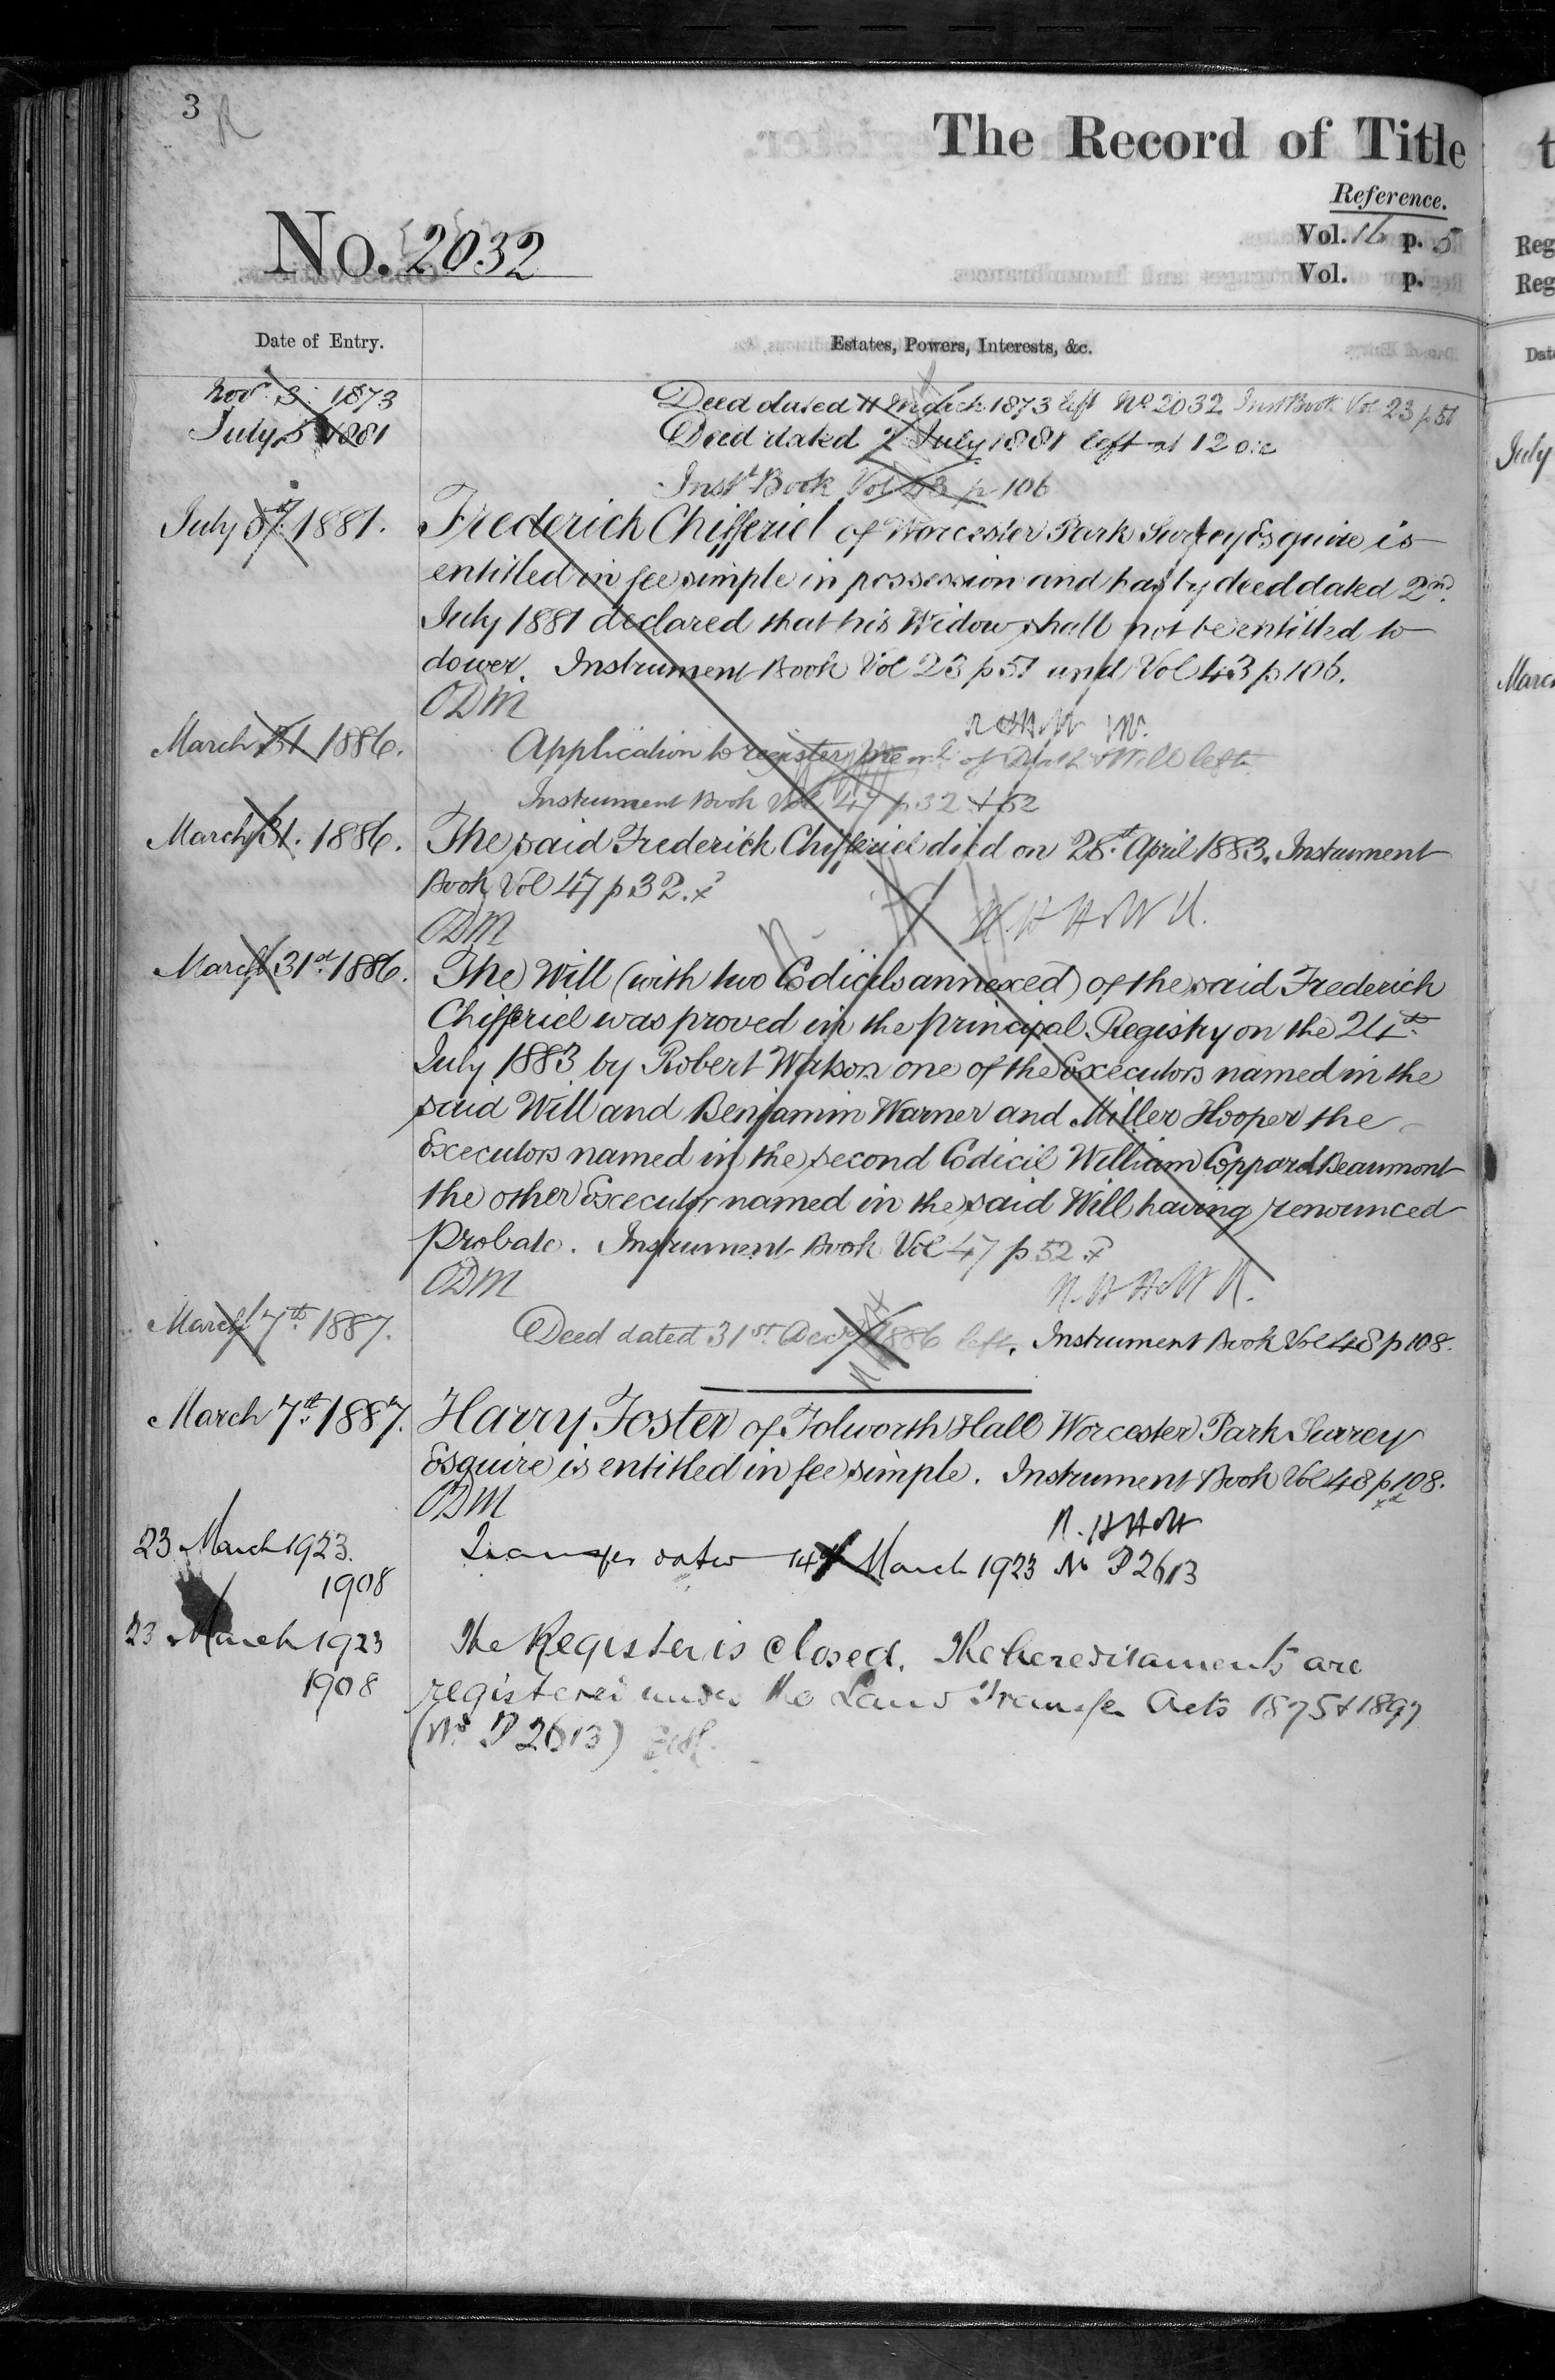 3
The Record of Title
Reference.
No. 2032
Vol. 16 p. 5
Vol. p.
Date of Entry.
Estates, Powers, Interests, &c.
Novr. 3. 1873
Deed dated 11 March 1873 left No 2032 Inst Book Vol 23 p 51
July 5 1881
Deed dated 2 July 1881 left at 12 o.c
Instt Book Vol 43 p 106
July 5th 1881.
Frederick Chifferiel of Worcester Park Surrey Esquire is
entitled in fee simple in possession and has by deed dated 2nd
July 1881 declared that his Widow shall not be entitled to
dower. Instrument Book Vol 23 p 51 and Vol 43 p 106.
ODM
March 31 1886.
Application to register of Death & Will left
Instrument Book Vol 47 p 32 & 52
March 31. 1886.
The said Frederick Chifferiel died on 28th April 1883. Instrument
Book Vol 47 p 32.
ODM
March 31st 1886.
The Will (with two Codicils annexed) of the said Frederick
Chifferiel was proved in the principal Registry on the 24th
July 1883 by Robert Watson one of the Executors named in the
said Will and Benjamin Warner and Miller Hooper the
Executors named in the second Codicil William Coppard Beaumont
the other Executor named in the said Will having renounced
Probate. Instrument Book Vol 47 p 52
ODM
March 7th 1887.
Deed dated 31st Decr 1886 left. Instrument Book Vol 48 p 108.
March 7th 1887.
Harry Foster of Tolworth Hall Worcester Park Surrey
Esquire is entitled in fee simple. Instrument Book Vol 48 p 108.
ODM
23 March 1923.
Transfer dated 14th March 1923 No P 2613
1908
23 March 1923
The Register is closed. The hereditaments are
1908
registered under the Land Transfer Acts 1875 & 1897
(No P 2613)
Reg
Reg
Dat
July
March